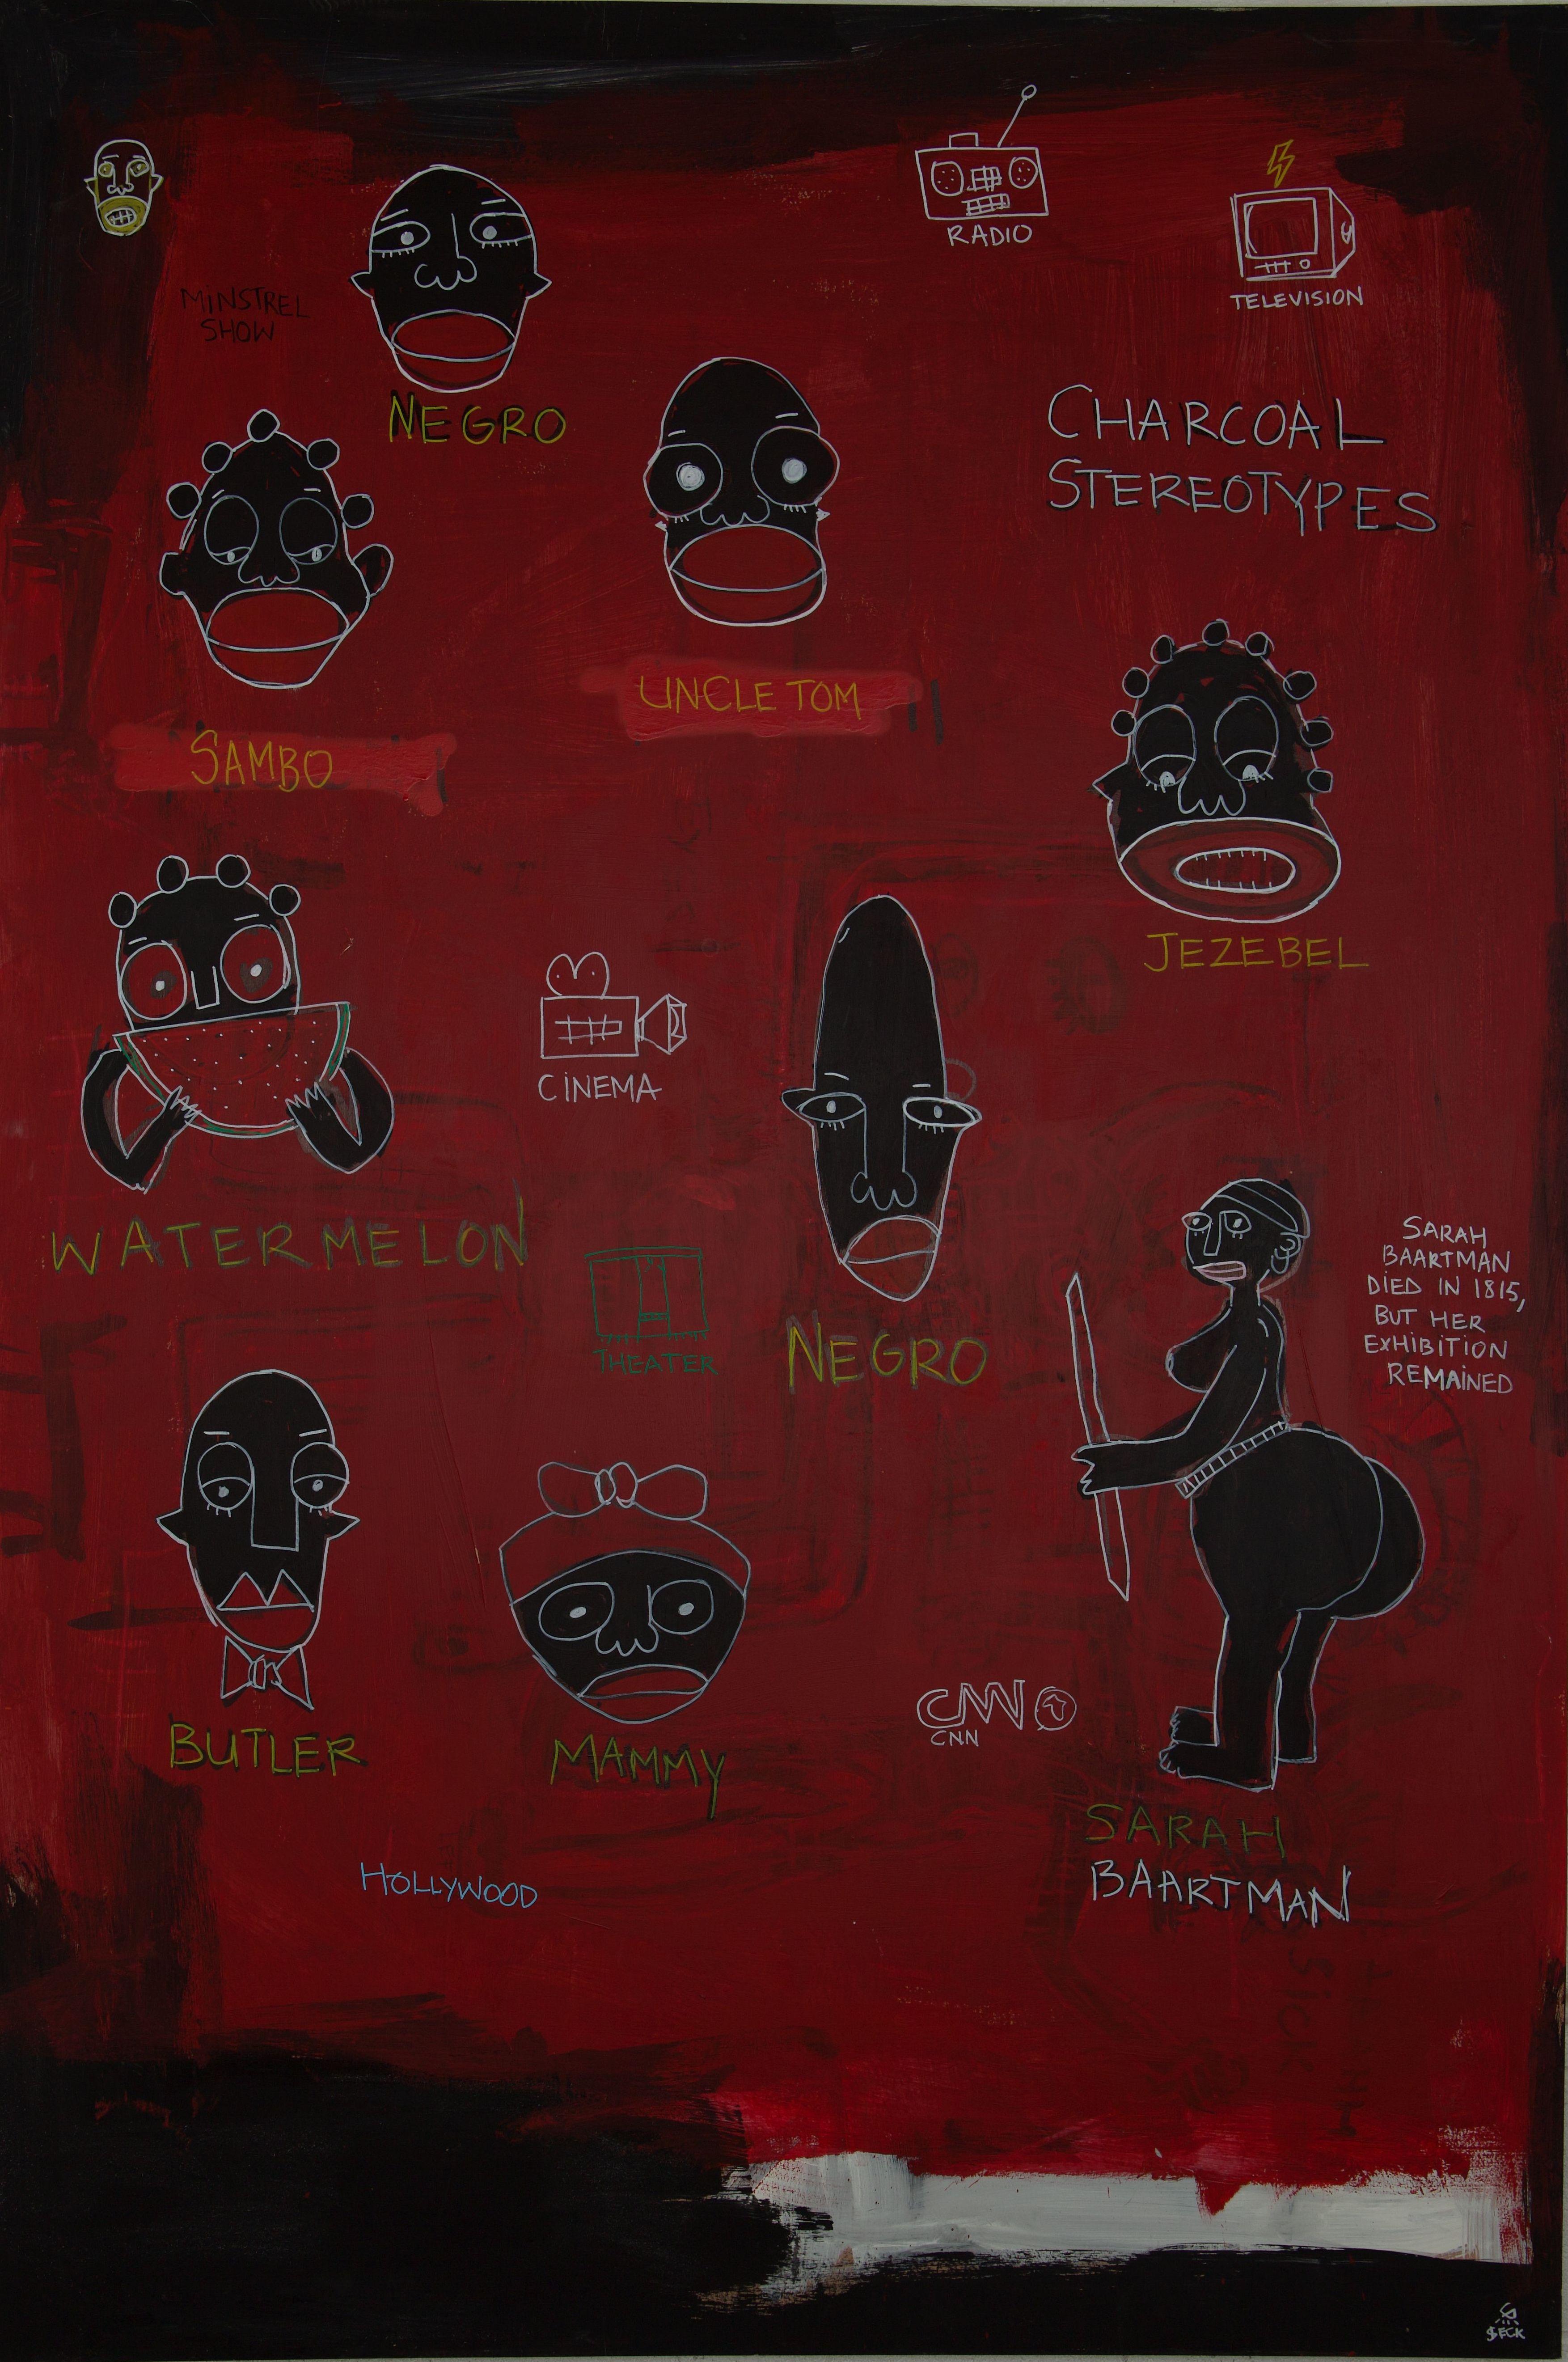 RADIO
TELEVISION
MINSTREL
SHOW
NEGRO
CHARCOAL
STEREOTYPES
UNCLE TOM
SAMBO
JEZEBEL
CINEMA
WATERMELON
THEATER
NEGRO
SARAH
BAARTMAN
DIED IN 1815,
BUT HER
EXHIBITION
REMAINED
CNN
CNN
BUTLER
MAMMY
SARAH
BAARTMAN
HOLLYWOOD
$ECK